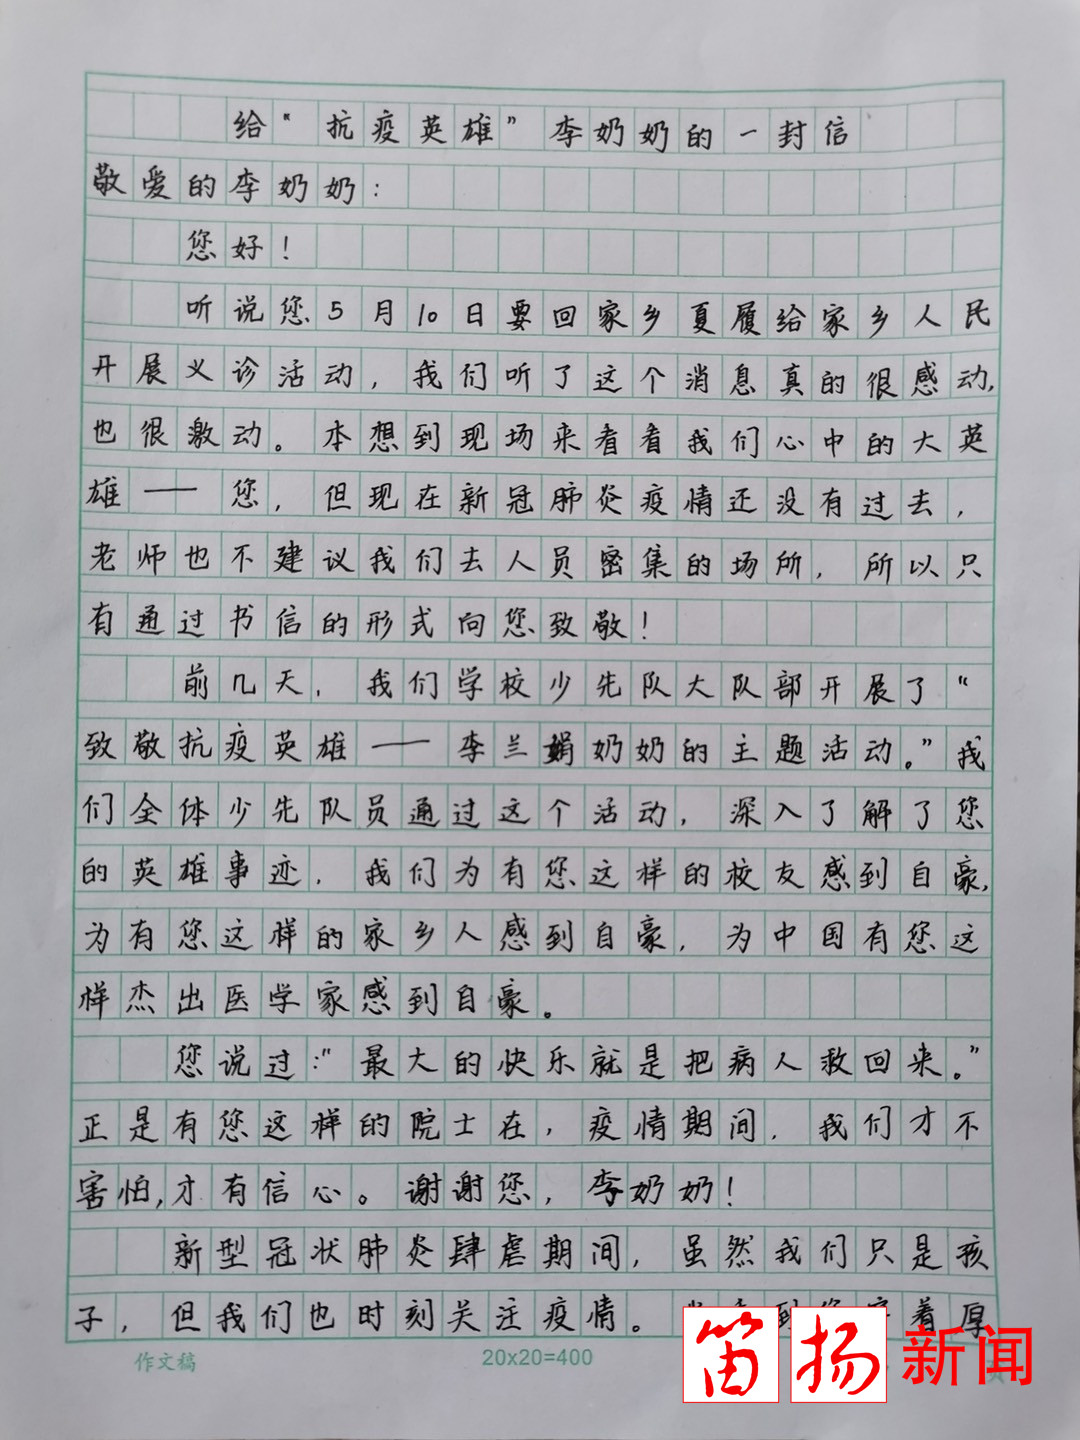 给“抗疫英雄”李奶奶的一封信
敬爱的李奶奶：
您好！
听说您5月10日要回家乡夏履给家乡人民
开展义诊活动，我们听了这个消息真的很感动，
也很激动。本想到现场来看看我们心中的大英
雄——您，但现在新冠肺炎疫情还没有过去，
老师也不建议我们去人员密集的场所，所以只
有通过书信的形式向您致敬！
前几天，我们学校少先队大队部开展了“
致敬抗疫英雄——李兰娟奶奶的主题活动。”我
们全体少先队员通过这个活动，深入了解了您
的英雄事迹，我们为有您这样的校友感到自豪，
为有您这样的家乡人感到自豪，为中国有您这
样杰出医学家感到自豪。
您说过：“最大的快乐就是把病人救回来。”
正是有您这样的院士在，疫情期间，我们才不
害怕，才有信心。谢谢您，李奶奶！
新型冠状肺炎肆虐期间，虽然我们只是孩
子，但我们也时刻关注疫情。到着厚
作文稿 20x20=400
笛扬新闻